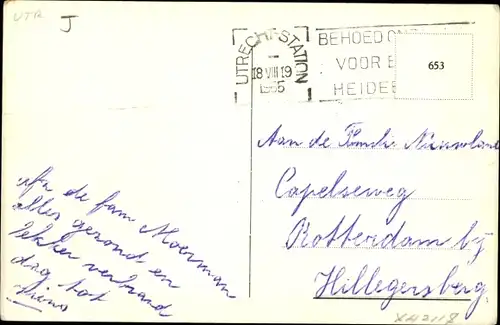 UTR
J
UTRECHT-STATION
18 VIII 19
1965
BEHOED
VOOR
HEIDE
653
Aan de Familie
Capelseweg
Rotterdam bij
Hillegersberg
de fam Moerman
alles gezond en
lekker verbrand
dag tot
ziens